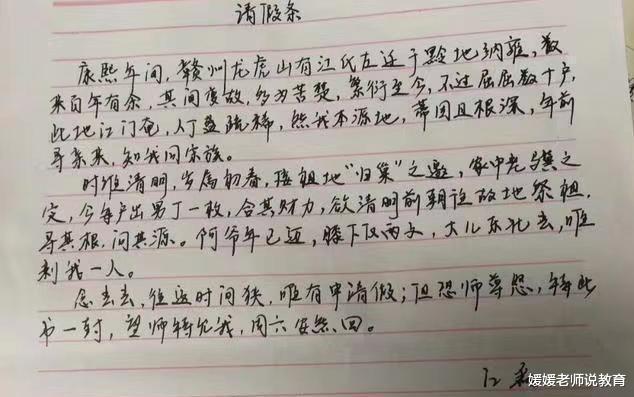 请假条
康熙年间，赣州龙虎山有江氏左迁于黔地纳雍，数
来百年有余，其间变故，多为苦楚，繁衍至今，不过屈屈数十户，
此地江门奄，人丁益疏稀，然我本源地，蒂固且根深，年前
寻亲来，知我同宗族。
时维清明，岁属初春，接祖地“归巢”之邀，家中老冀之
定，今每户出男丁一枚，合其财力，欲清明前朝往故地祭祖，
寻其根，问其源。阿爷年已迈，膝下仅两子，大儿东北去，唯
剩我一人。
念去去，往返时间狭，唯有申请假；但恐师尊怨，特此
书一封，望师特允我，周六安然回。
江
媛媛老师说教育